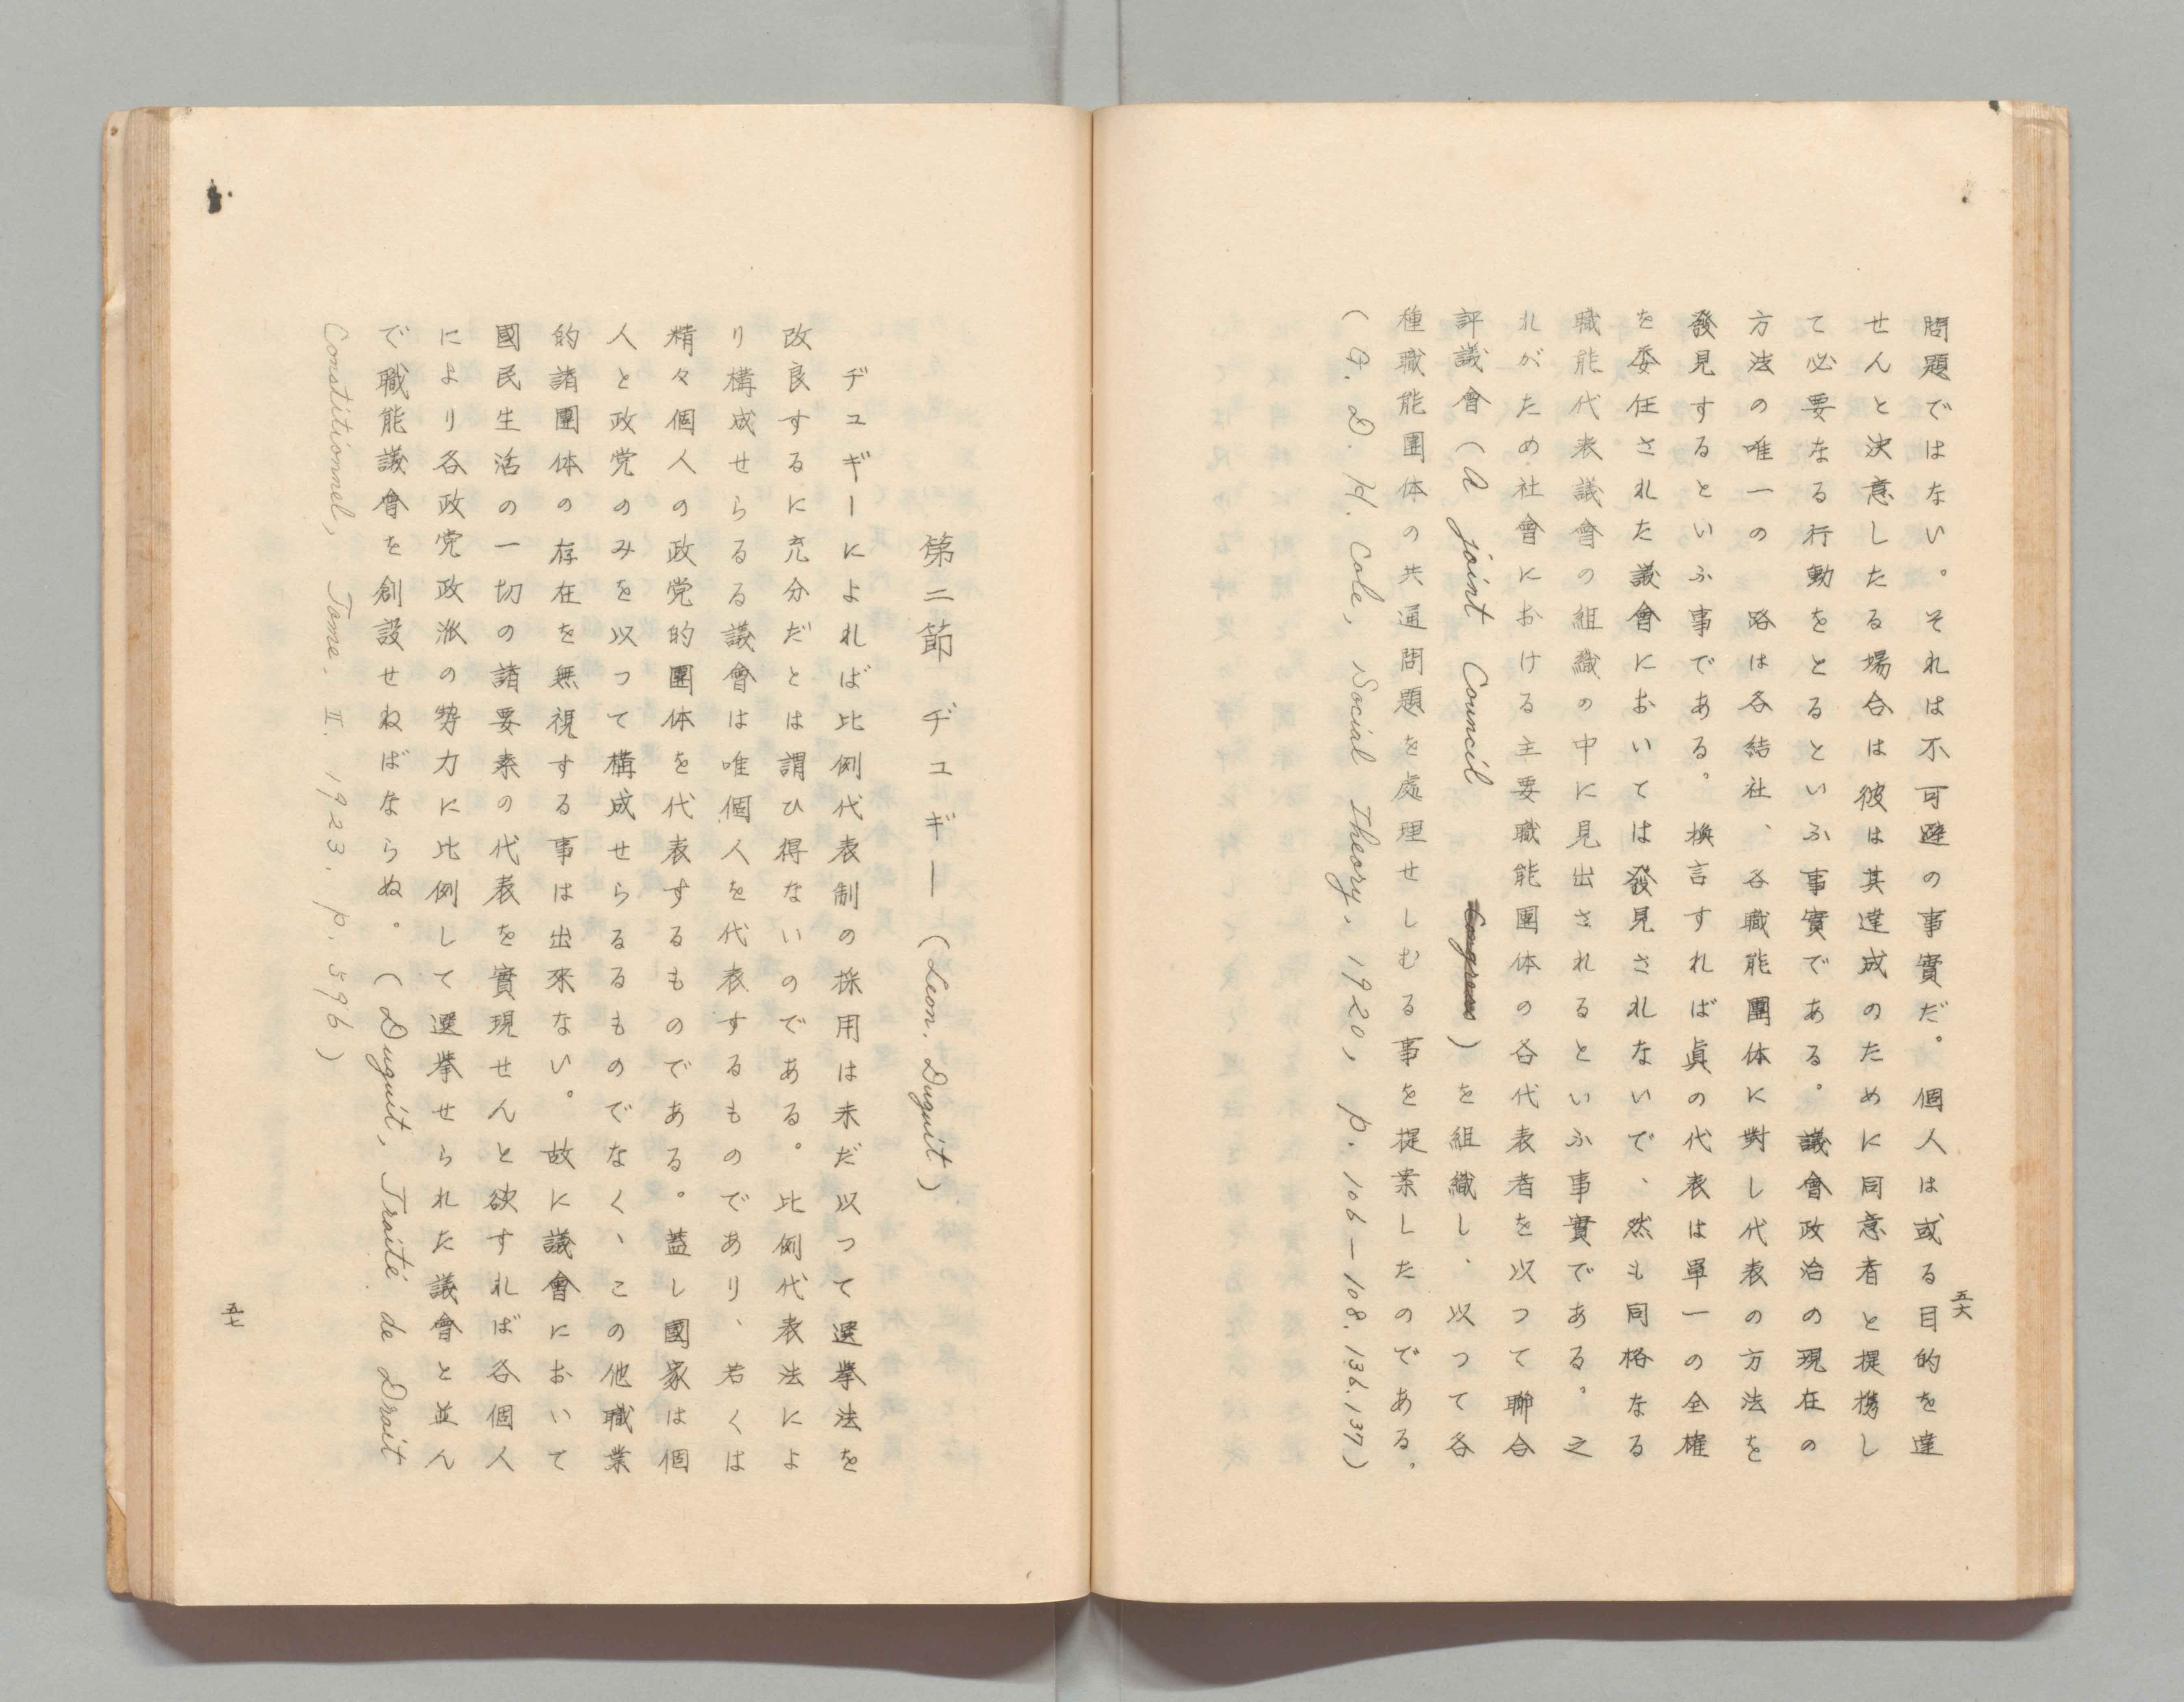 問題ではない。それは不可避の事實だ。個人は或る目的を達
せんと決意したる場合は彼は其達成のために同意者と提携し
て必要なる行動をとるといふ事實である。議會政治の現在の
方法の唯一の路は各結社、各職能團体に對し代表の方法を
發見するといふ事である。換言すれば眞の代表は單一の全権
を委任された議會においては發見されないで、然も同格なる
職能代表議會の組織の中に見出されるといふ事實である。之
れがため社會における主要職能團体の各代表者を以つて聯合
評議會(A joint Council )を組織し、以つて各
種職能團体の共通問題を處理せしむる事を提案したのである。
(G. D. H. Cole, Social Theory, 1920, p. 106—108. 136. 137)
五六
第二節 ヂユギー (Leon. Duguit)
ヂユギーによれば比例代表制の採用は未だ以つて選挙法を
改良するに充分だとは謂ひ得ないのである。比例代表法によ
り構成せらるる議會は唯個人を代表するものであり、若くは
精々個人の政党的團体を代表するものである。蓋し國家は個
人と政党のみを以つて構成せらるるものでなく、この他職業
的諸團体の存在を無視する事は出來ない。故に議會において
國民生活の一切の諸要素の代表を實現せんと欲すれば各個人
により各政党政派の勢力に比例して選挙せられた議會と並ん
で職能議會を創設せねばならぬ。(Duguit, Traité de Droit
Constitionnel, Tome. II. 1923. p. 596)
五七